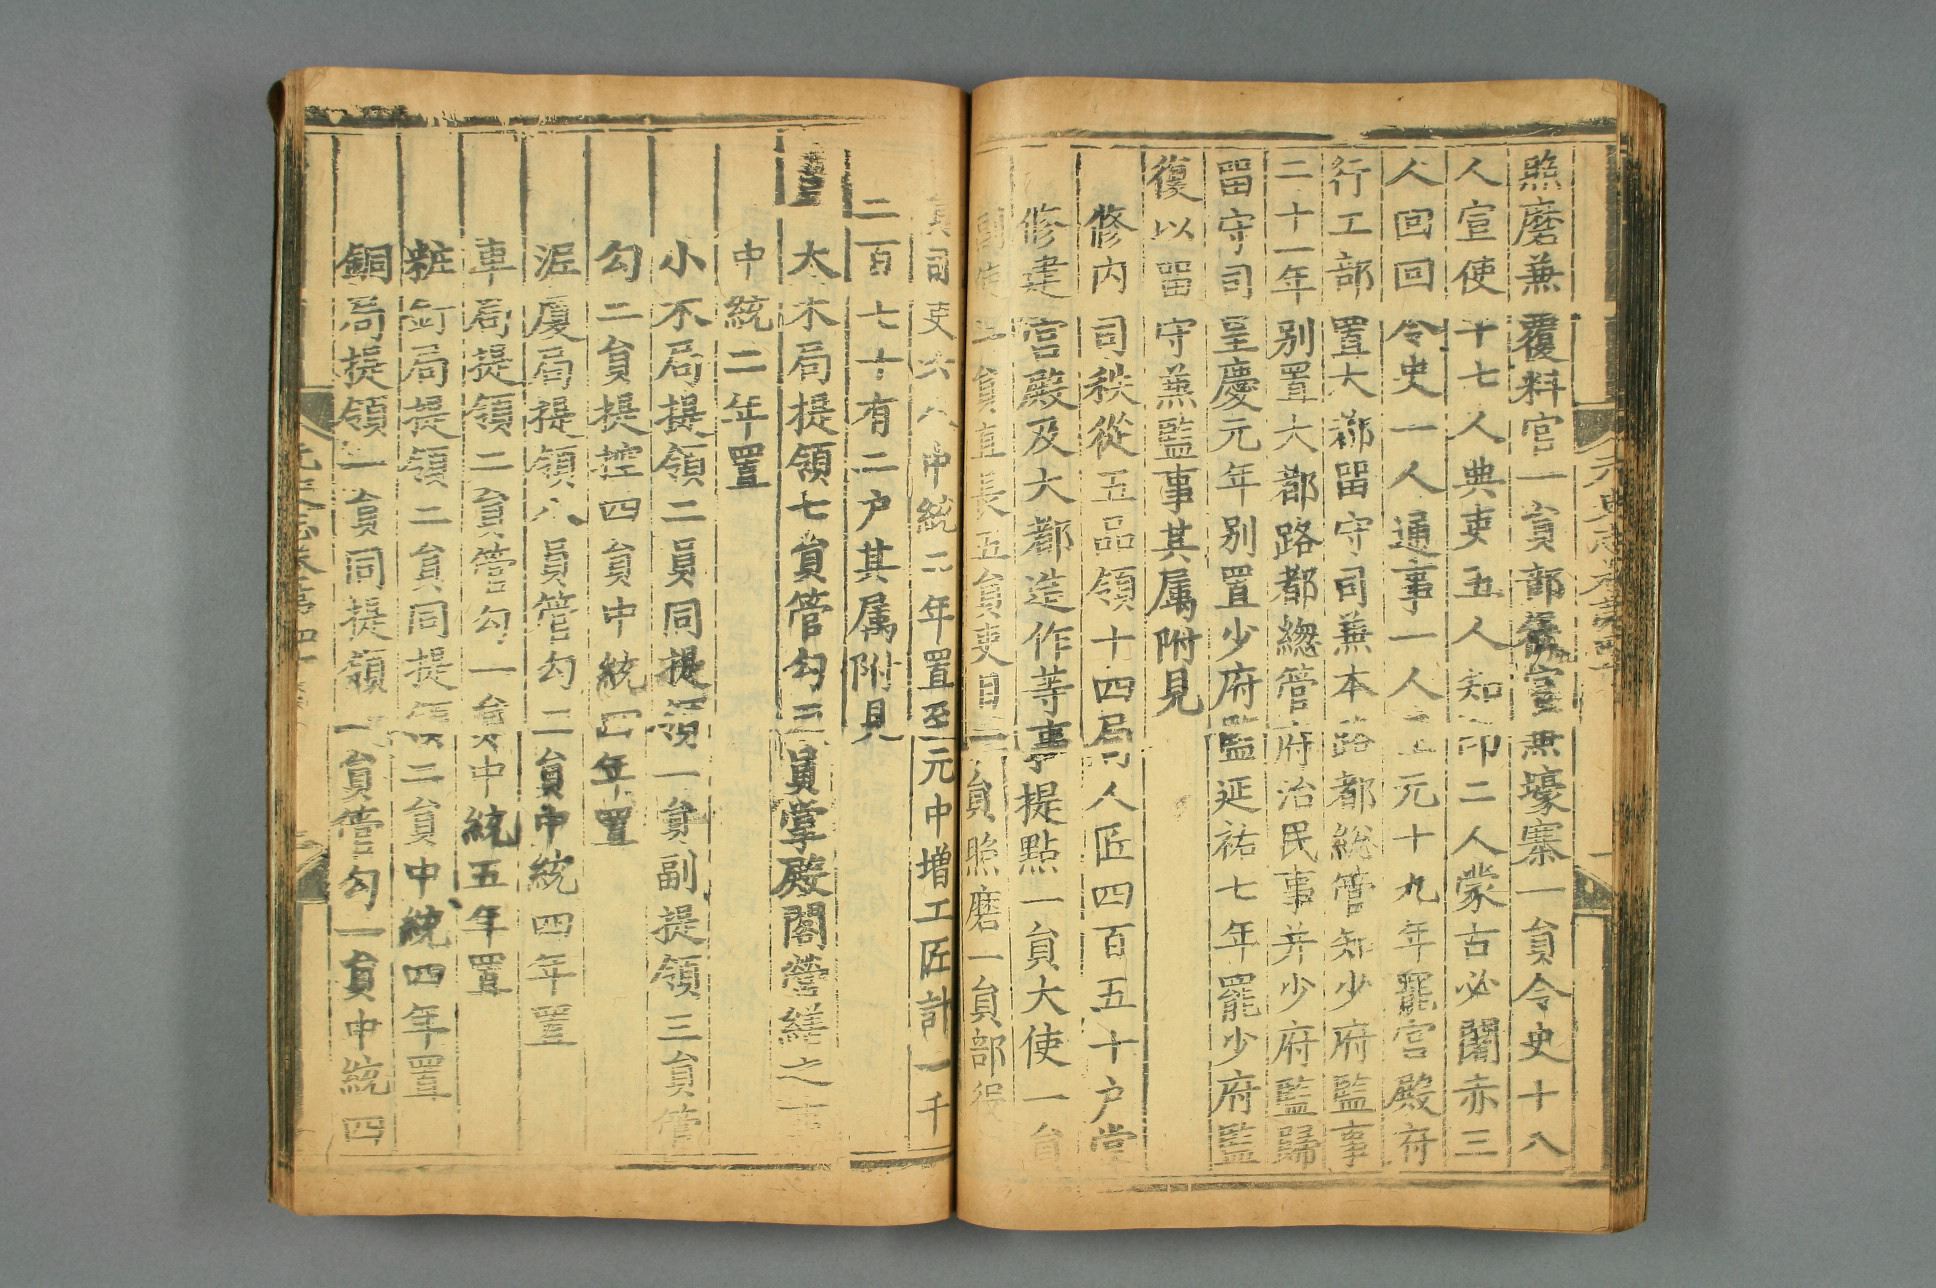 照磨兼覆料官一員部役官兼壕寨一員令史十八
人宣使十七人典吏五人知印二人蒙古必闍赤三
人回回令史一人通事一人至元十九年罷宮殿府
行工部置大都留守司兼本路都総管知少府監事
二十一年别置大都路都緫管府治民事并少府監歸
留守司皇慶元年别置少府監延祐七年罷少府監
復以留守兼監事其属附見
修内司秩從五品領十四局人匠四百五十户掌
修建宮殿及大都造作等事提點一員大使一員
副使二員直長五員吏目一員照磨一員部役
員司吏六人中統二年置至元中增工匠計一千
二百七十有二户其属附見
大木局提領七員管勾三員掌殿閣營繕之事
中統二年置
小木局提領二員同提領一員副提領三員管
勾二員提控四員中統四年置
泥厦局提領八員管勾二員中統四年置
車局提領二員管勾一員中統五年置
粧釘局提領二員同提領二員中統四年置
銅局提領一員同提領一員管勾一員中統四